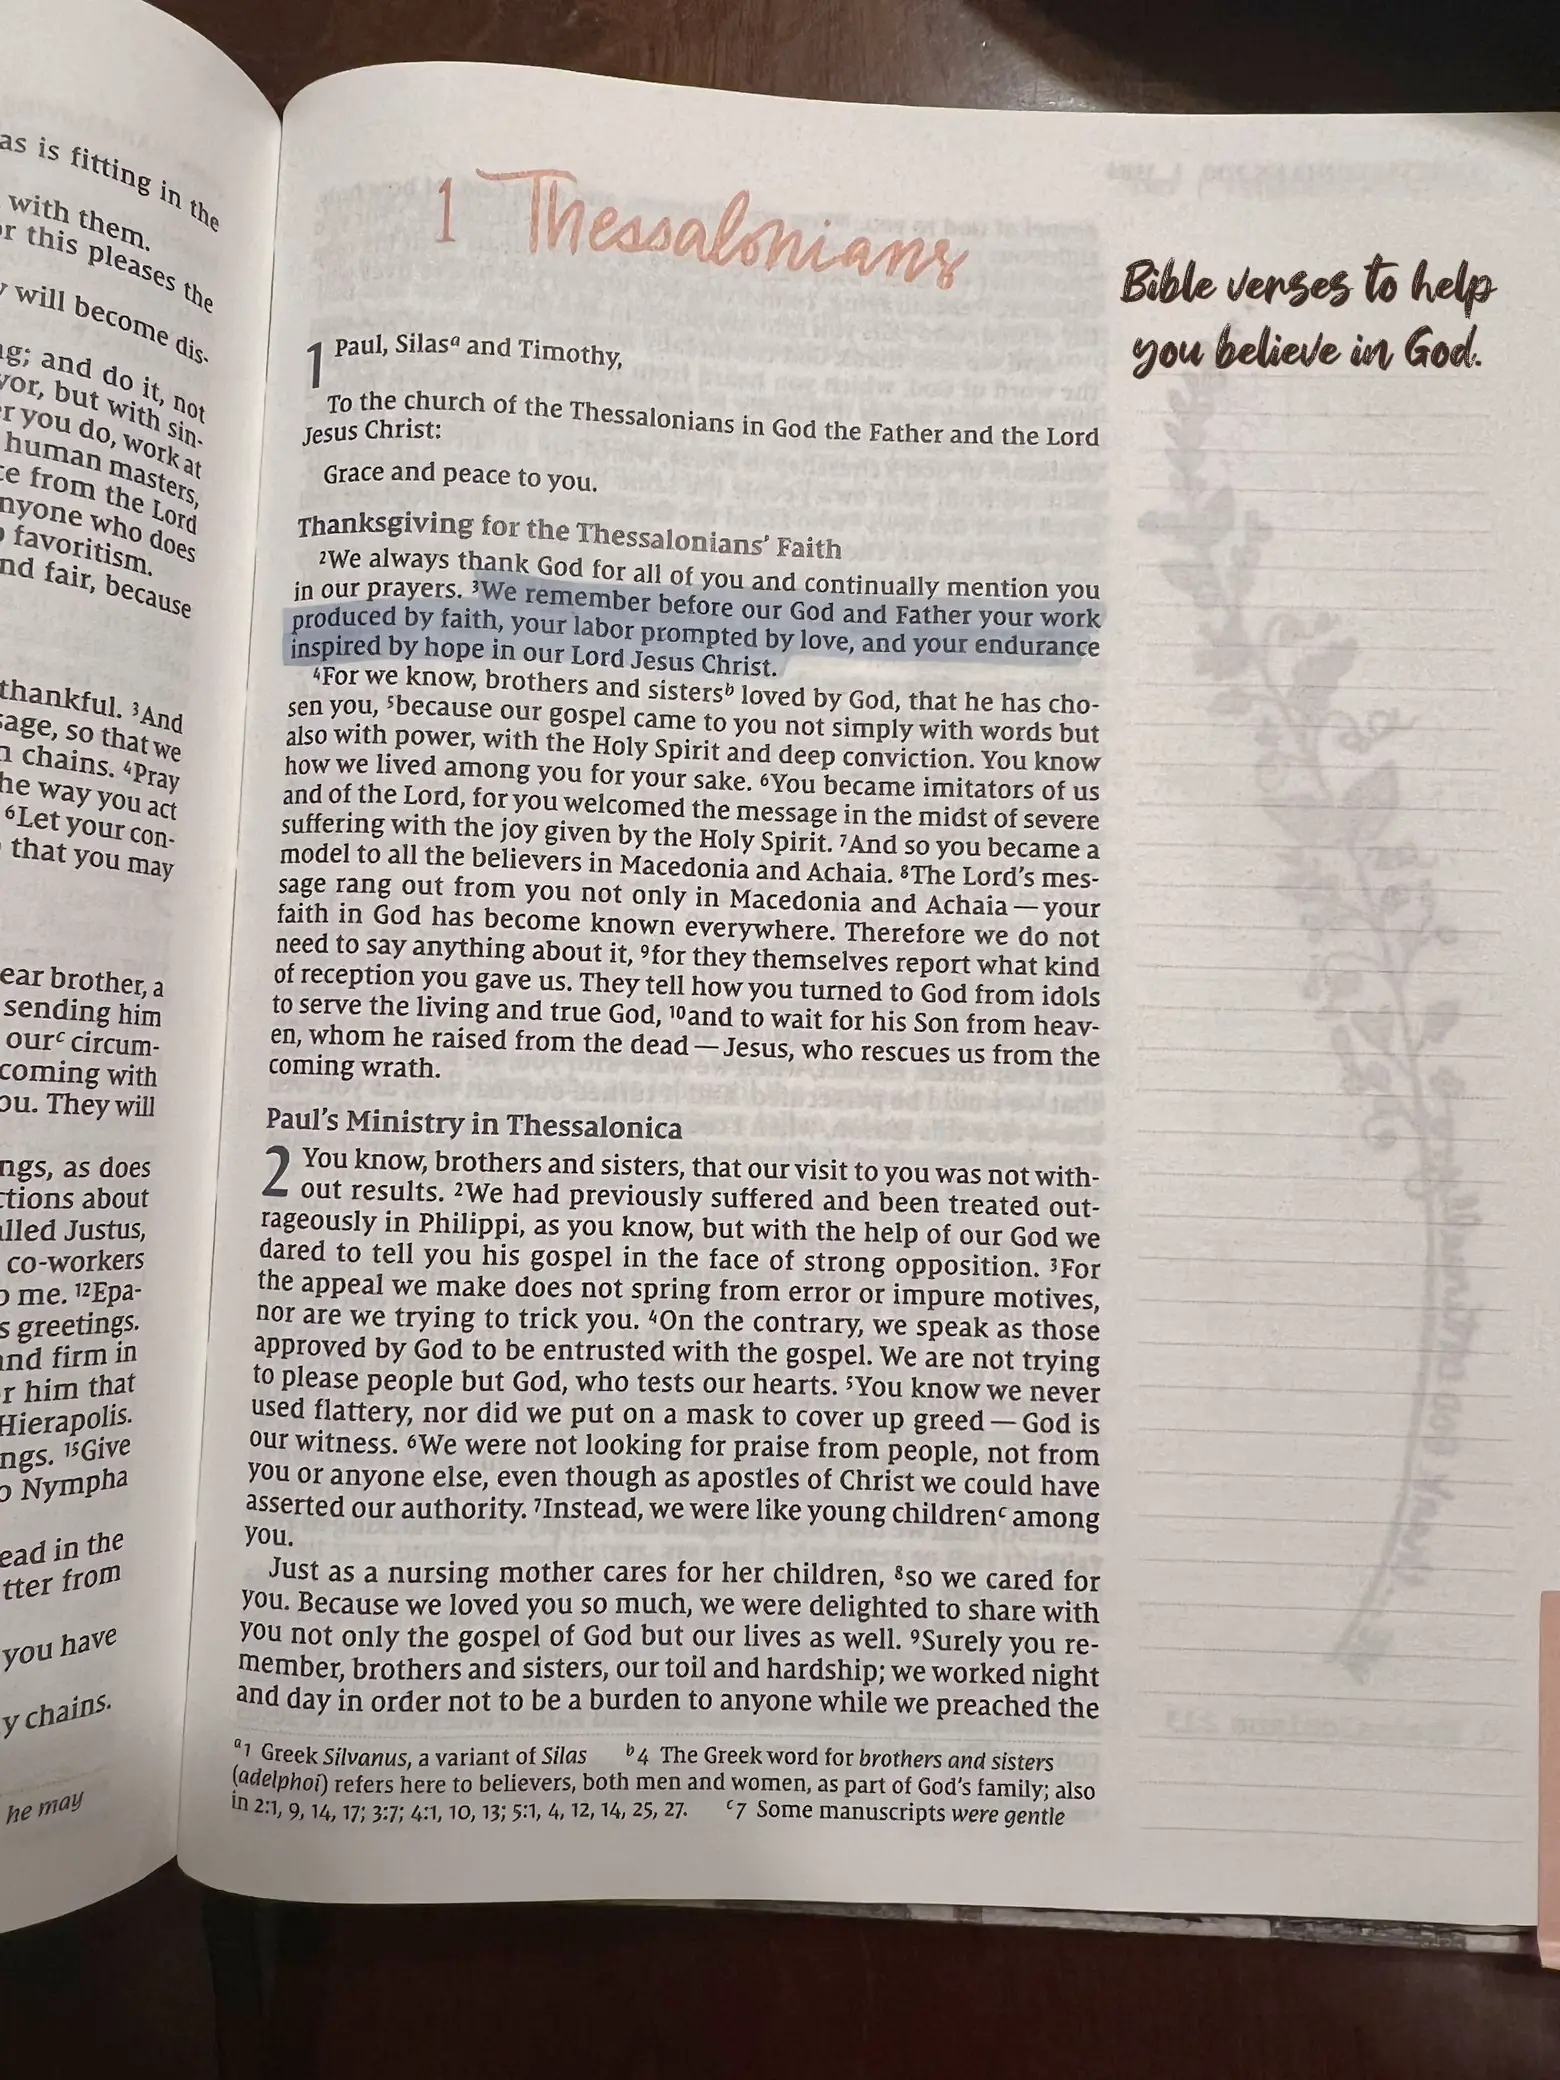 as is fitting in the
with them.
r this pleases the
will become dis-
g; and do it, not
vor, but with sin-
r you do, work at
human masters,
ce from the Lord
nyone who does
favoritism.
nd fair, because
thankful. ³And
sage, so that we
n chains. ⁴Pray
he way you act
⁶Let your con-
that you may
ear brother, a
sending him
ourᶜ circum-
coming with
ou. They will
ngs, as does
ctions about
lled Justus,
co-workers
o me. ¹²Epa-
s greetings.
and firm in
r him that
Hierapolis.
ngs. ¹⁵Give
o Nympha
ead in the
tter from
you have
y chains.
he may
1 Thessalonians
1 Paul, Silasᵃ and Timothy,
To the church of the Thessalonians in God the Father and the Lord
Jesus Christ:
Grace and peace to you.
Thanksgiving for the Thessalonians’ Faith
²We always thank God for all of you and continually mention you
in our prayers. ³We remember before our God and Father your work
produced by faith, your labor prompted by love, and your endurance
inspired by hope in our Lord Jesus Christ.
⁴For we know, brothers and sistersᵇ loved by God, that he has cho-
sen you, ⁵because our gospel came to you not simply with words but
also with power, with the Holy Spirit and deep conviction. You know
how we lived among you for your sake. ⁶You became imitators of us
and of the Lord, for you welcomed the message in the midst of severe
suffering with the joy given by the Holy Spirit. ⁷And so you became a
model to all the believers in Macedonia and Achaia. ⁸The Lord’s mes-
sage rang out from you not only in Macedonia and Achaia — your
faith in God has become known everywhere. Therefore we do not
need to say anything about it, ⁹for they themselves report what kind
of reception you gave us. They tell how you turned to God from idols
to serve the living and true God, ¹⁰and to wait for his Son from heav-
en, whom he raised from the dead — Jesus, who rescues us from the
coming wrath.
Paul’s Ministry in Thessalonica
2 You know, brothers and sisters, that our visit to you was not with-
out results. ²We had previously suffered and been treated out-
rageously in Philippi, as you know, but with the help of our God we
dared to tell you his gospel in the face of strong opposition. ³For
the appeal we make does not spring from error or impure motives,
nor are we trying to trick you. ⁴On the contrary, we speak as those
approved by God to be entrusted with the gospel. We are not trying
to please people but God, who tests our hearts. ⁵You know we never
used flattery, nor did we put on a mask to cover up greed — God is
our witness. ⁶We were not looking for praise from people, not from
you or anyone else, even though as apostles of Christ we could have
asserted our authority. ⁷Instead, we were like young childrenᶜ among
you.
Just as a nursing mother cares for her children, ⁸so we cared for
you. Because we loved you so much, we were delighted to share with
you not only the gospel of God but our lives as well. ⁹Surely you re-
member, brothers and sisters, our toil and hardship; we worked night
and day in order not to be a burden to anyone while we preached the
ᵃ1 Greek Silvanus, a variant of Silas ᵇ4 The Greek word for brothers and sisters
(adelphoi) refers here to believers, both men and women, as part of God’s family; also
in 2:1, 9, 14, 17; 3:7; 4:1, 10, 13; 5:1, 4, 12, 14, 25, 27. ᶜ7 Some manuscripts were gentle
Bible verses to help
you believe in God.